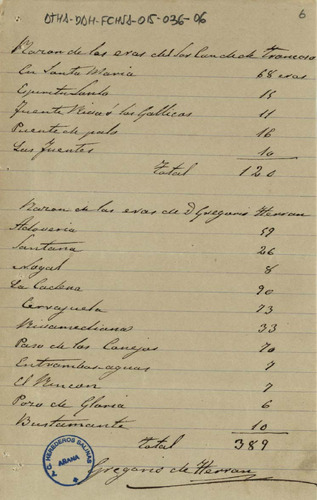 ATHA-DAH-FCHSA-015-036-06
6
Razon de las eras del Sor Conde de Troncoso
En Santa Maria 68 eras
Espiritu Santo 15
Fuente Rivas los Gallicos 11
Puente de palo 16
Las Fuentes 10
Total 120
Razon de las eras de D Gregorio Herran
Adoveria 59
Santana 26
Nogal 8
La Cadena 90
Cerrajuela 73
Rivamediana 33
Paso de los Conejos 70
Entrambas-aguas 7
El Rincon 7
Pozo de Gloria 6
Bustamante 10
total 389
Gregorio de Herran
C. HEREDEROS SALINAS
ARANA